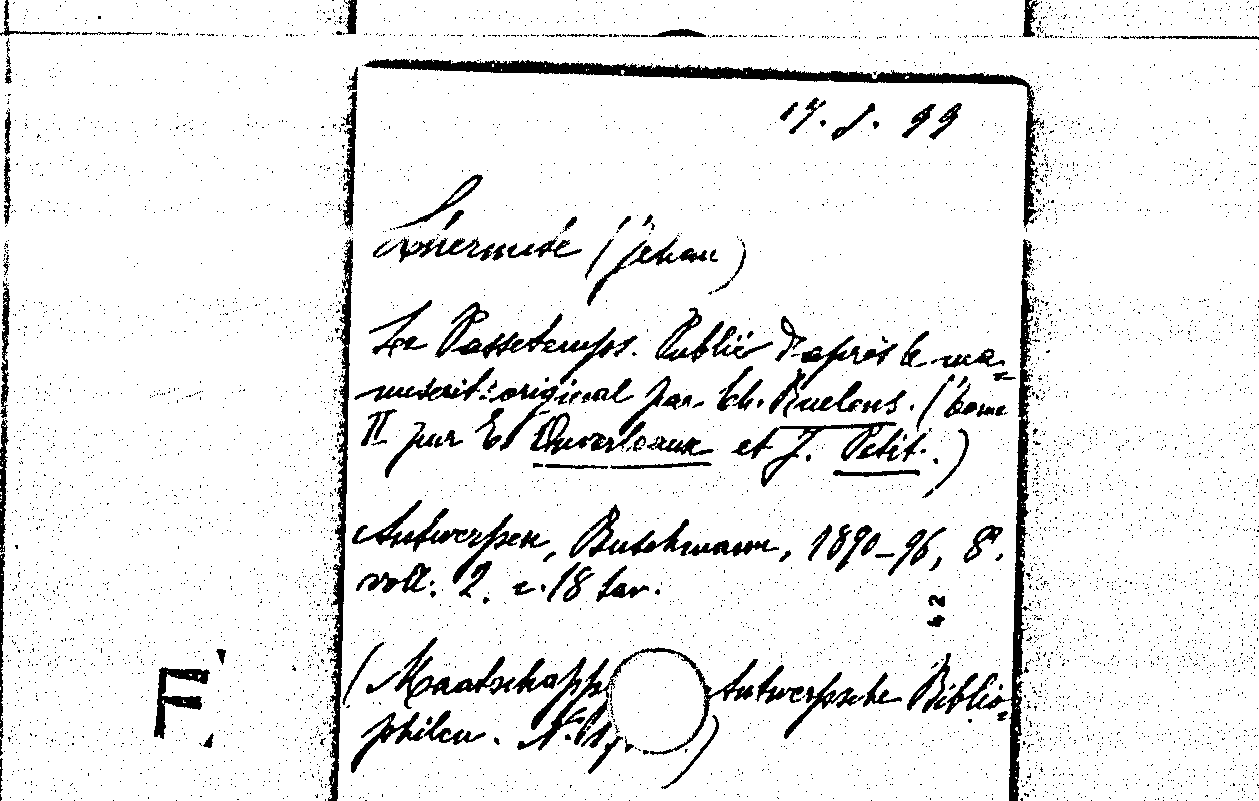 17. J. 99
Lhermite (Jehan)
Le Passetemps. Publié d'après le ma=
nuscrit original par Ch. Ruelens. (tome
II par E. Ouverleaux et J. Petit.)
Antwerpen, Buschmann, 1890-96, 8°.
voll. 2. c. 18 tav.
42
(Maatschapp Antwerpsche Biblio=
philen. N.
F